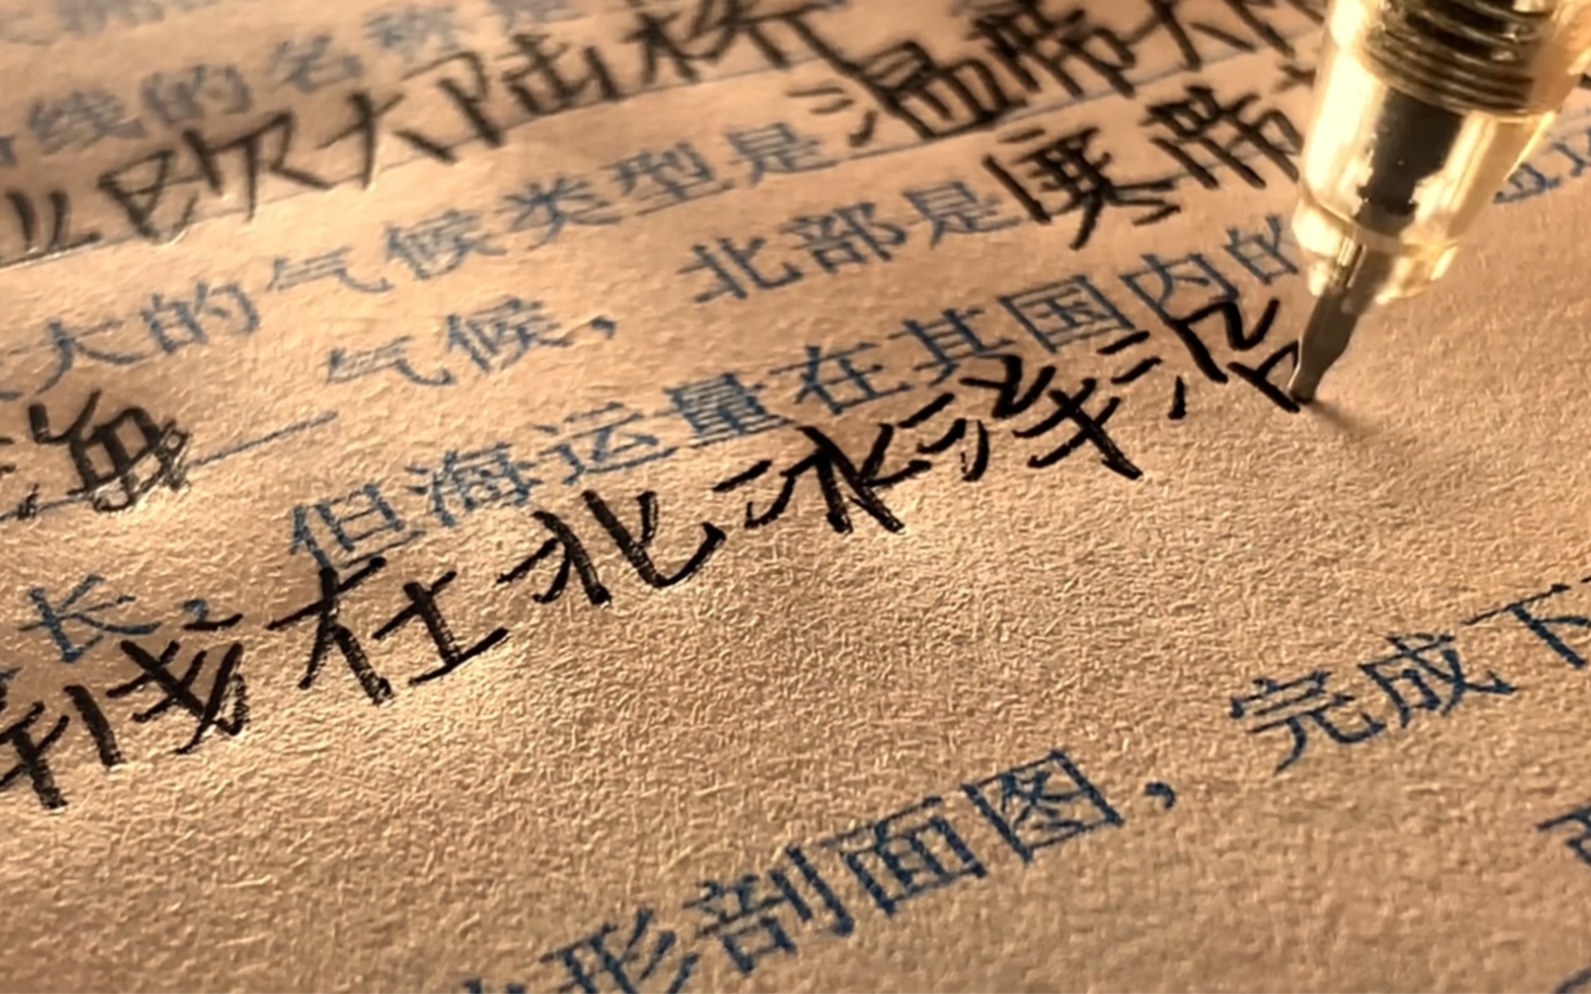 线的名称是
欧大陆桥 温带大陆
大的气候类型是
气候，北部是寒带
海
长，但海运量在其国内的
线在北冰洋沿
形剖面图，完成下